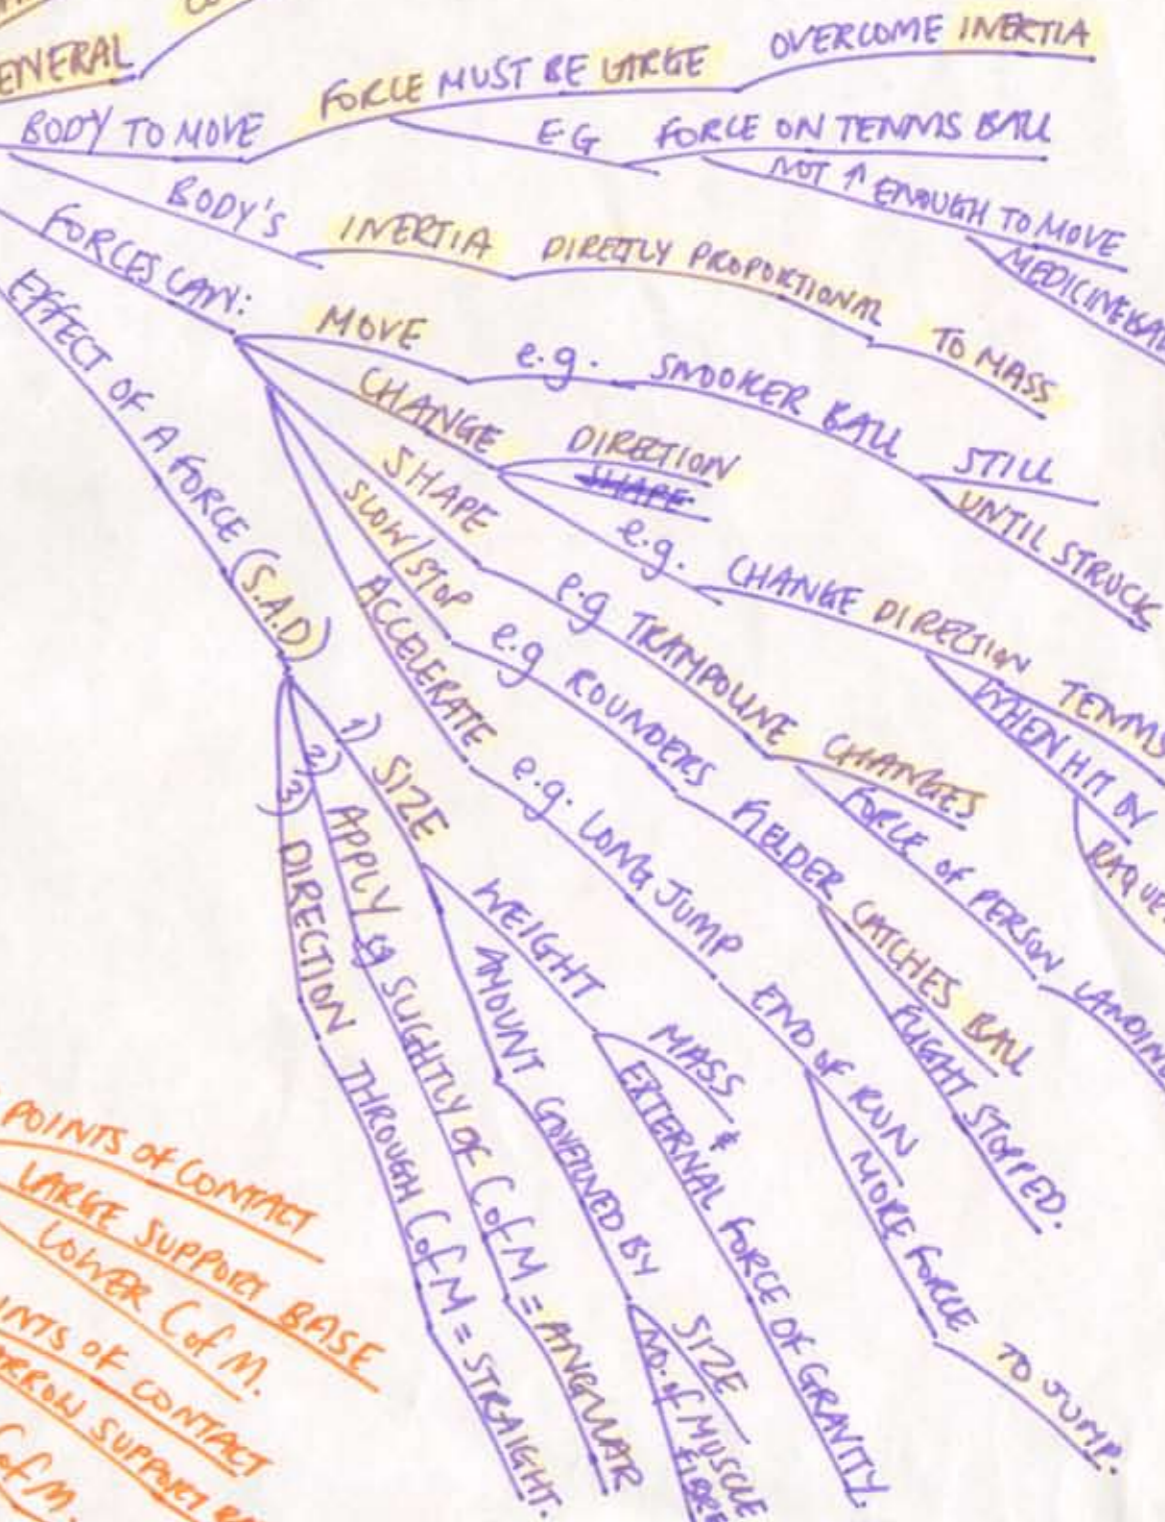 ENERAL
BODY TO MOVE
FORCE MUST BE LARGE
OVERCOME INERTIA
EG FORCE ON TENNIS BALL
NOT ↑ ENOUGH TO MOVE
MEDICINE BAL
BODY'S
INERTIA DIRECTLY PROPORTIONAL TO MASS
FORCES CAN:
MOVE
e.g. SNOOKER BALL
STILL
UNTIL STRUCK
CHANGE
DIRECTION
SHAPE
e.g. CHANGE DIRECTION TENNIS
WHEN HIT BY
RAQUE
SHAPE
e.g TRAMPOLINE CHANGES
FORCE OF PERSON LANDIN
SLOW/STOP
e.g ROUNDERS FIELDER CATCHES BALL
FLIGHT STOPPED.
ACCELERATE
e.g. LONG JUMP END OF RUN
MORE FORCE TO JUMP.
EFFECT OF A FORCE (S.A.D)
1) SIZE
WEIGHT
MASS &
EXTERNAL FORCE OF GRAVITY.
AMOUNT GOVERNED BY
SIZE
NO. of MUSCLE
FIBRE
2) APPLY SLIGHTLY OF C of M = ANGULAR
3) DIRECTION THROUGH C of M = STRAIGHT.
POINTS OF CONTACT
LARGE SUPPORT BASE
LOWER C of M.
INTS OF CONTACT
RROW SUPPORT
C of M.